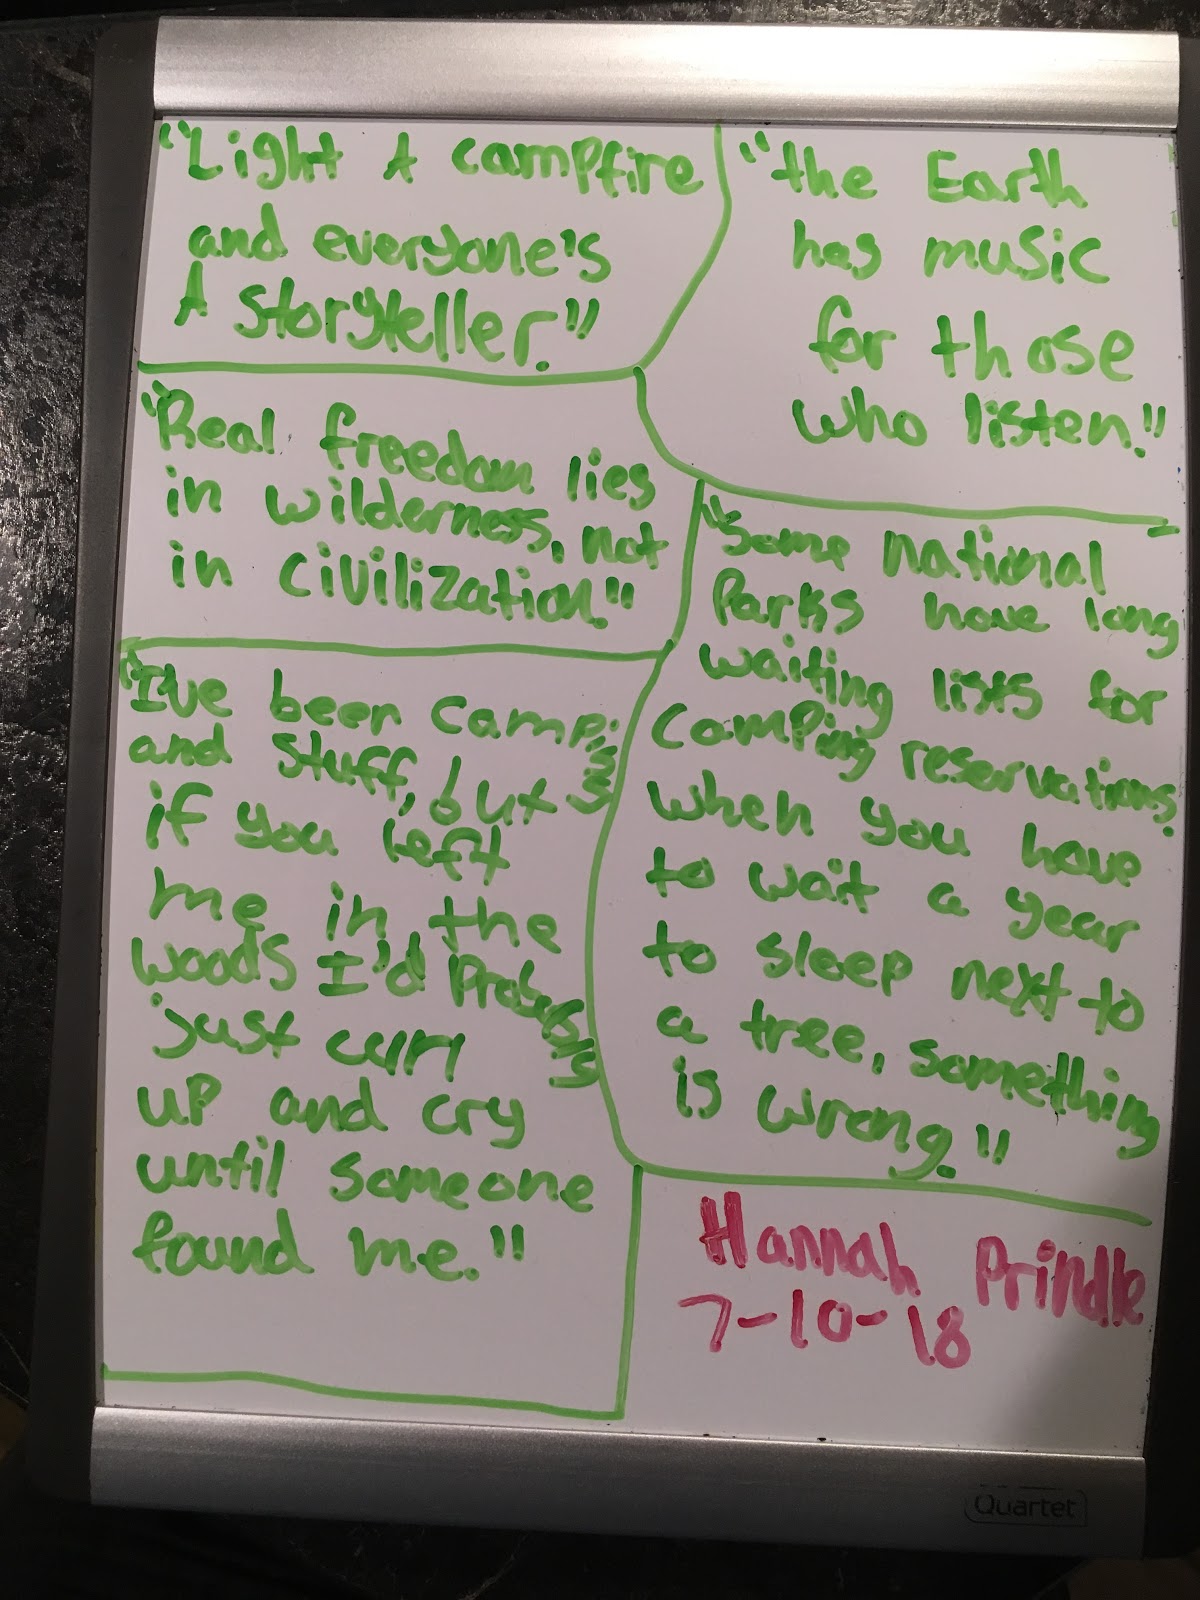 "Light A campfire
and everyone's
A Storyteller."
"the Earth
has music
for those
who listen."
"Real freedom lies
in wilderness, not
in civilization."
"Some national
Parks have long
waiting lists for
camping reservations.
When you have
to wait a year
to sleep next to
a tree, something
is wrong."
"I've been camping
and stuff, but
if you left
me in the
woods I'd Probably
just curl
up and cry
until someone
found me."
Hannah Prindle
7-10-18
Quartet